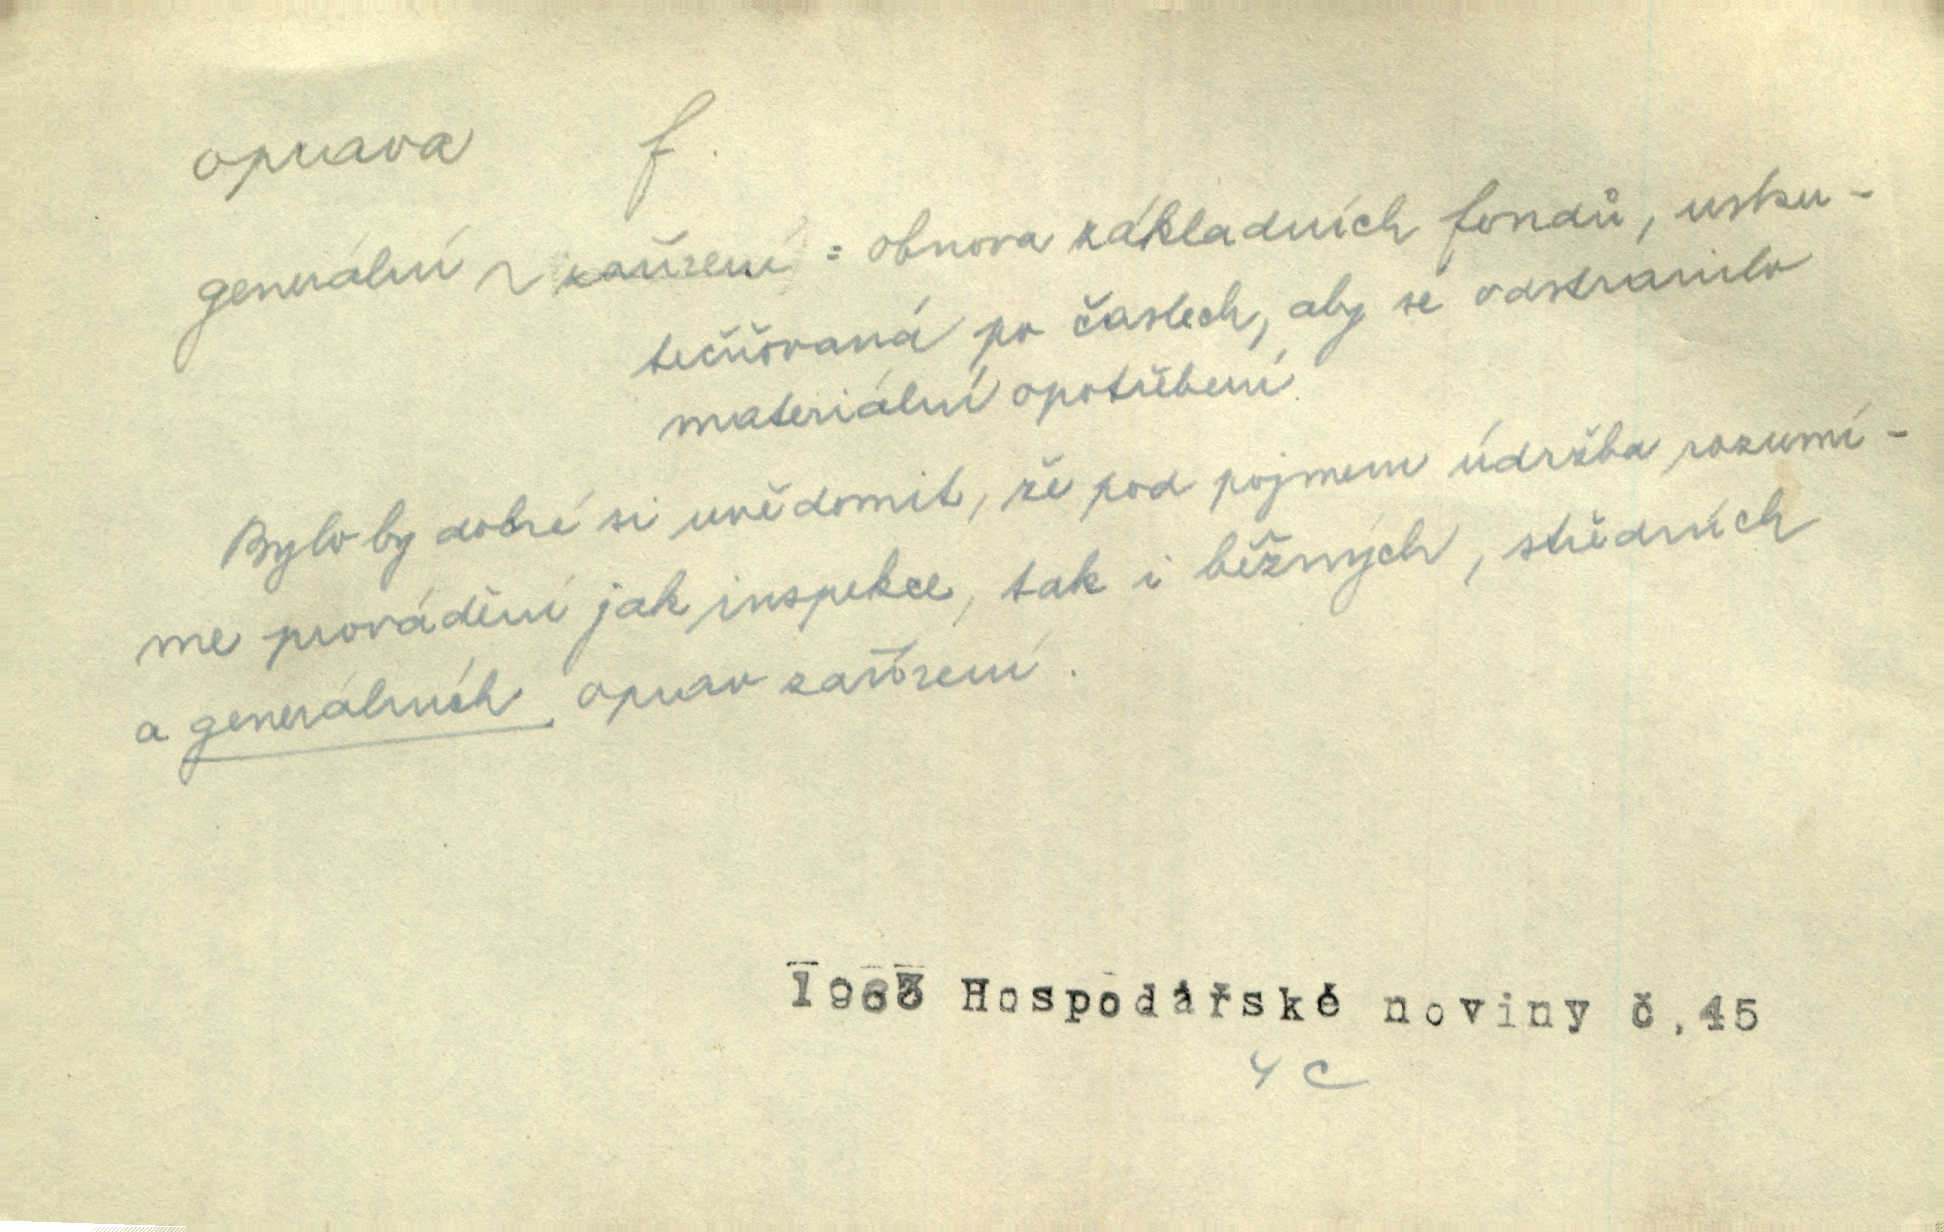 oprava f.
generální ~ zařízení = obnova základních fondů, usku-
tečňovaná po částech, aby se odstranilo
materiální opotřebení.
Bylo by dobré si uvědomit, že pod pojmem údržba rozumí-
me provádění jak inspekce, tak i běžných, středních
a generálních oprav zařízení.
1963 Hospodářské noviny č.45
4 c